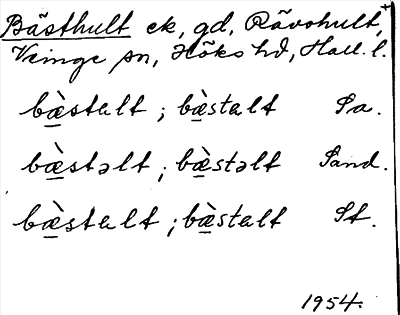 Bästhult ek, gd, Rävshult,+
Veinge sn, Höks hd, Hall. l.
bæ̀stalt ; bæ̀stalt Sa.
bæ̀stəlt ; bæ̀stəlt Sand.
bæ̀stalt ; bæ̀stalt St.
1954.